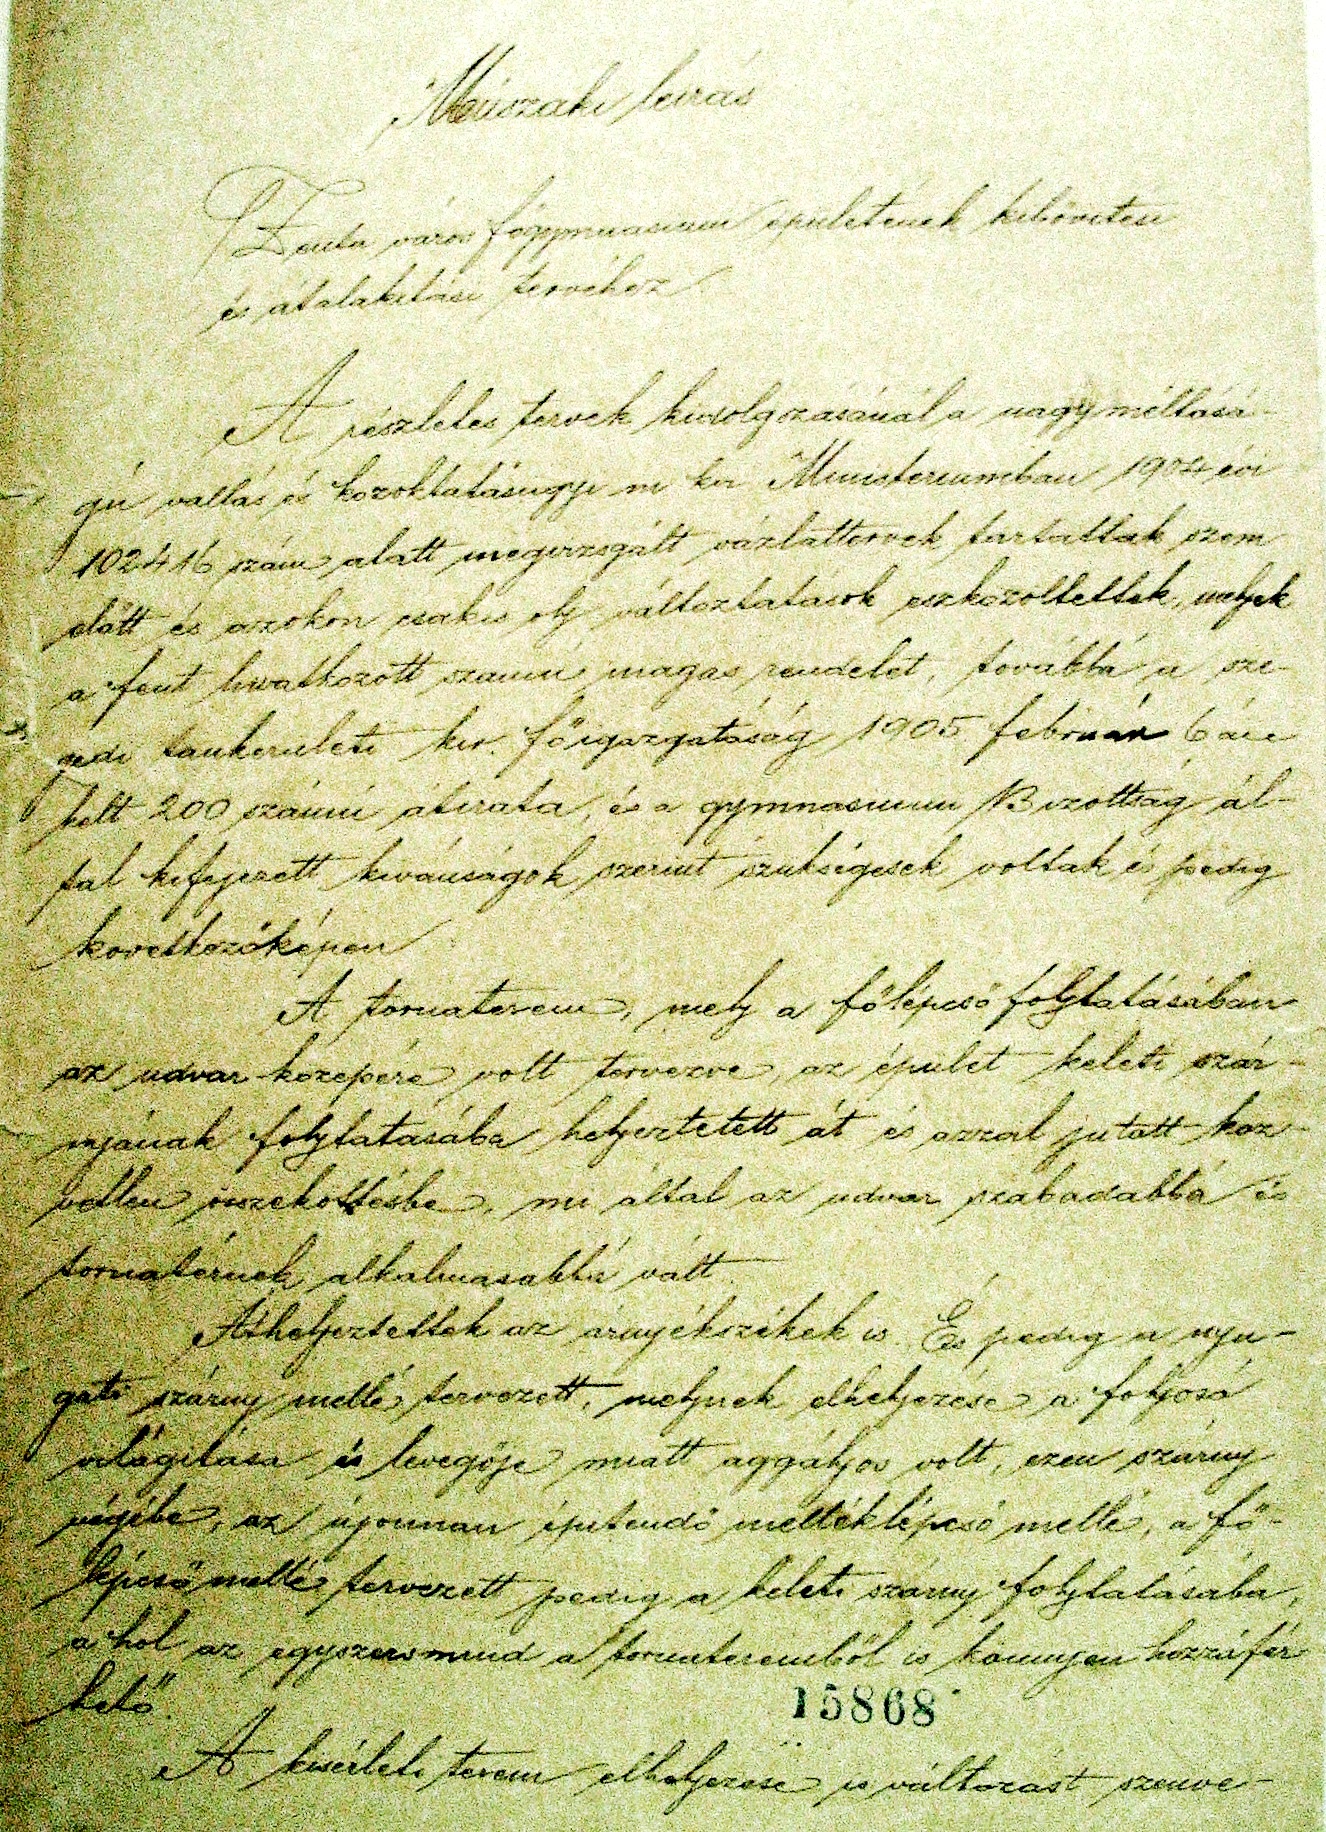 Műszaki leirás
Zenta város főgymnasium épületének kibővitési
és átalakitási tervéhez
A részletes tervek kidolgozásánál a nagyméltósá-
gú vallás és közoktatásügyi m kir Ministeriumban 1904 évi
102416 szám alatt megvizsgált vázlattervek tartattak szem
előtt és azokon csakis oly változtatások eszközöltettek, melyek
a fent hivatkozott számú magas rendelet, továbbá a sze-
gedi tankerületi kir. főigazgatóság 1905 február 6 án
kelt 200 számú átirata, és a gymnasiumi Bizottság ál-
tal kifejezett kivánságok szerint szükségesek voltak és pedig
következőképen
A tornaterem, mely a főlépcső folytatásában
az udvar közepére volt tervezve, az épület keleti szár-
nyának folytatásába helyeztetett át és azzal jutott köz-
vetlen összeköttésbe, mi által az udvar szabadabbá és
tornatérnek alkalmasabbá vált
Áthelyeztettek az árnyékszékek is. És pedig a nyu-
gati szárny mellé tervezett, melynek elhelyezése a folyosó
világitása és levegője miatt aggályos volt, ezen szárny
végébe, az újonnan épitendő melléklépcső mellé, a fő-
lépcső mellé tervezett pedig a keleti szárny folytatásába,
a hol az egyszersmind a tornateremből is könnyen hozzáfér
hető.
15868
A kisérleti terem elhelyezése is változást szenve-